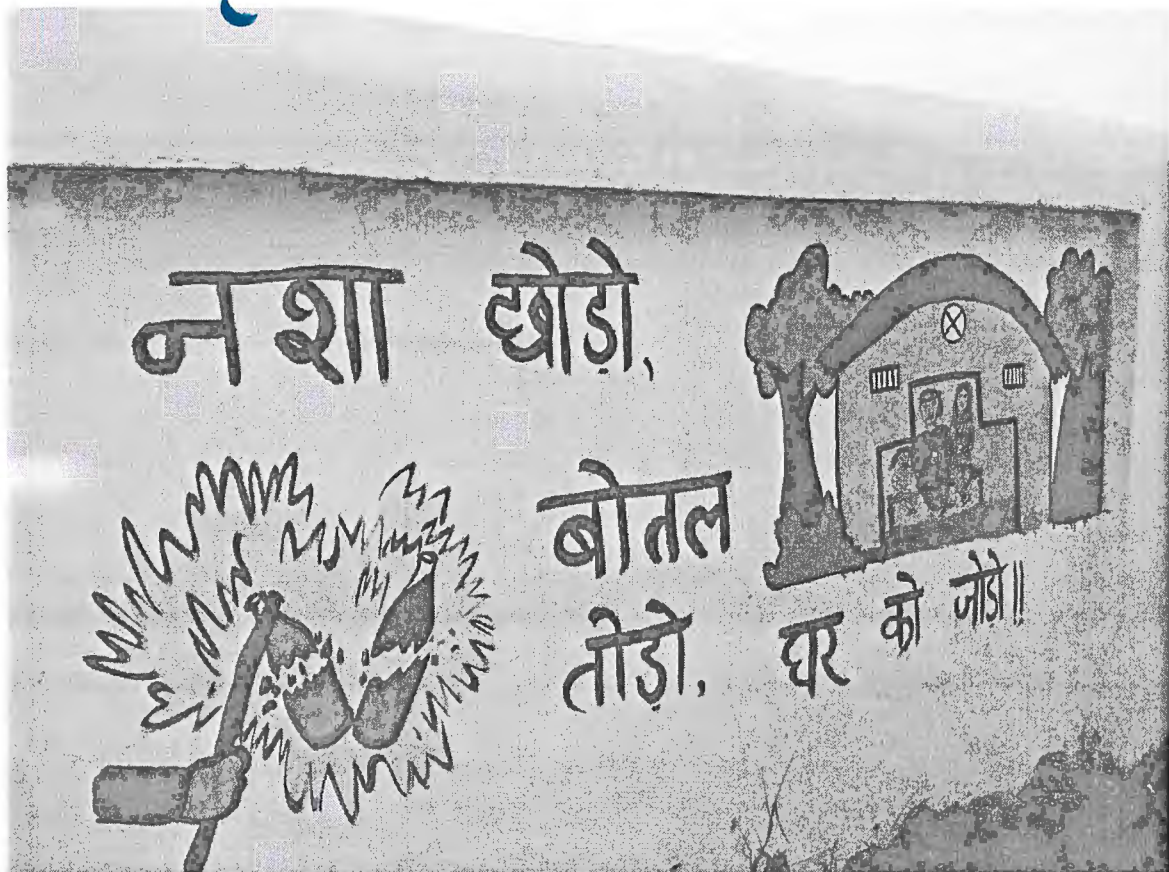 नशा छोड़ो,
बोतल
तोड़ो, घर को जोडो॥